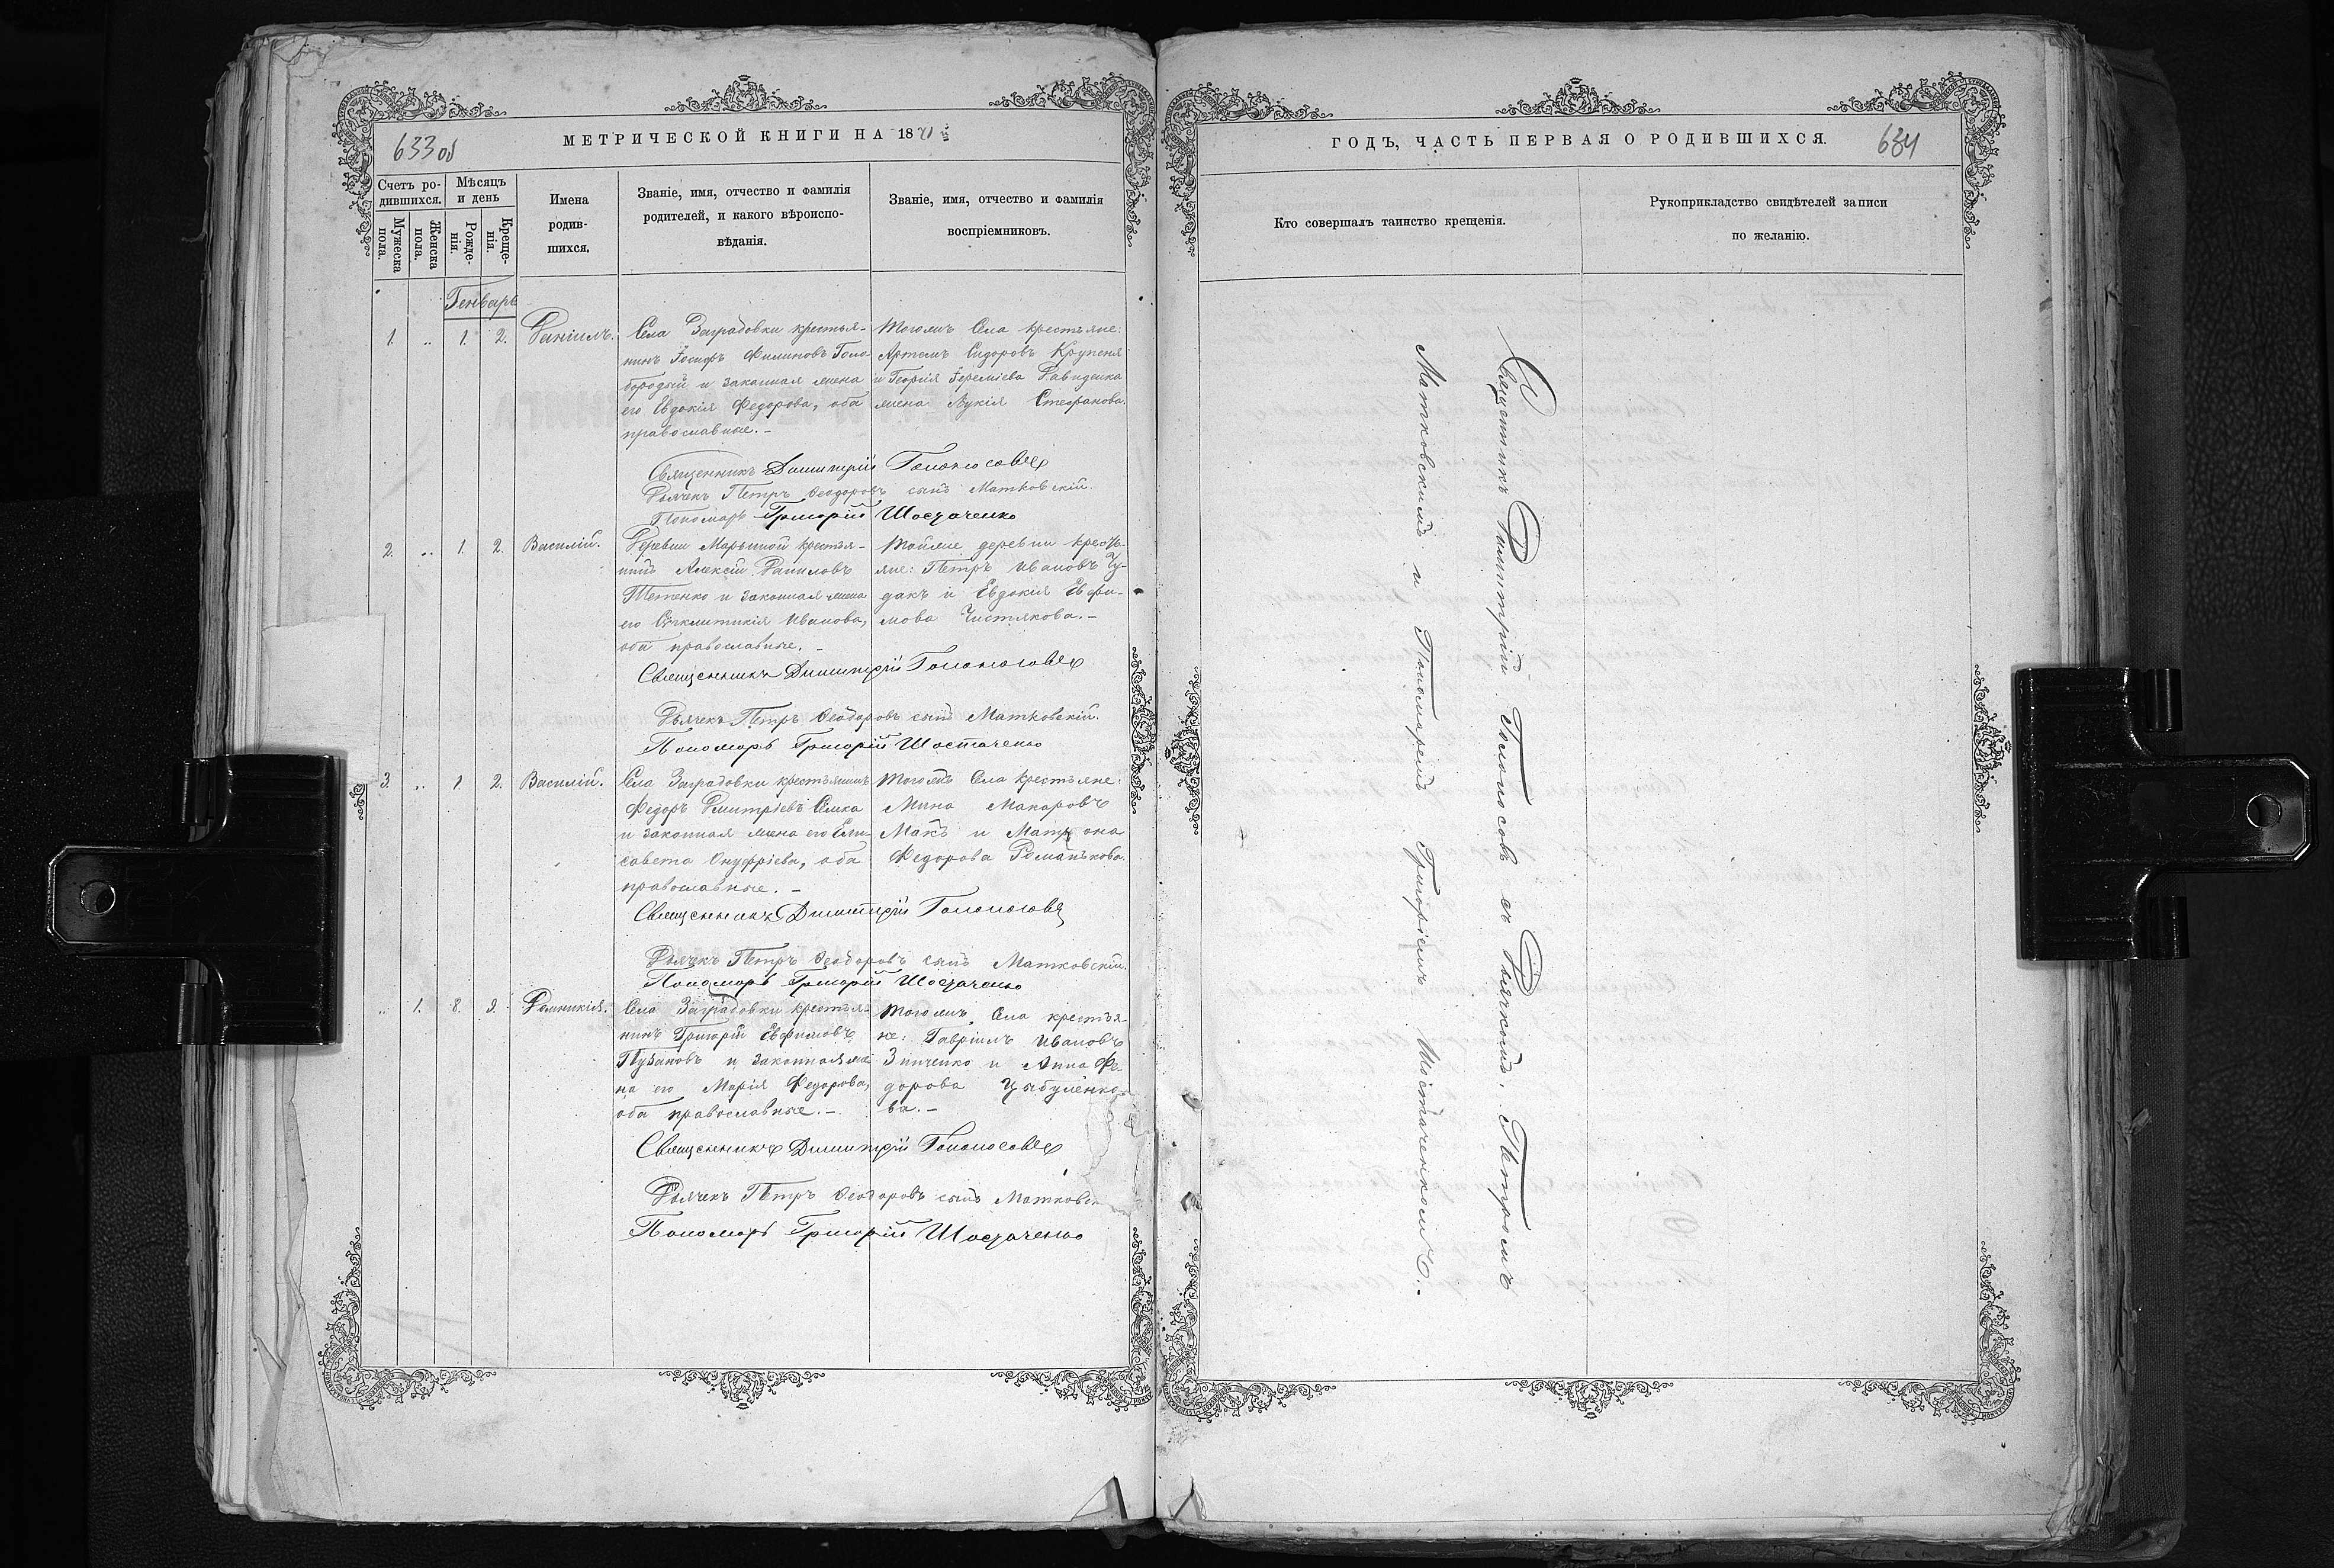 633 об
МЕТРИЧЕСКОЙ КНИГИ НА 18
Счетъ ро-
дившихся.
Мѣсяцъ
и день
Мужеска
пола.
Женска
пола.
Рожде-
нія.
Креще-
нія.
Имена
родив-
шихся.
Званіе, имя, отчество и фамилія
родителей, и какого вѣроиспо-
вѣданія.
Званіе, имя, отчество и фамилія
воспріемниковъ.
Генварь
1. „ 1. 2. Даніилъ.
Села Заградовки крестья-
нинъ Іосифъ Филиповъ Голо-
бородый и законная жена
его Евдокія Федорова, оба
православные. -
Тогожъ Села крестьяне:
Артемъ Сидоровъ Крупеня
и Георгія Іереміева Давиденка
жена Лукія Стефанова.
Священникъ Димитрій Голоносовъ
Дьячекъ Петръ Феодоровъ сынъ Матковскій.
Пономарь Григорій Шостаченко
2. „ 1. 2. Василій.
Деревни Марьиной крестья-
нинъ Алексій Даниловъ
Тетенко и законная жена
его Сѵнклитикія Иванова,
оба православные. -
Тойже деревни кресть-
яне: Петръ Ивановъ Чу-
дакъ и Евдокія Евфи-
мова Чистякова. -
Священникъ Димитрій Голоносовъ
Дьячекъ Петръ Феодоровъ сынъ Матковскій.
Пономарь Григорій Шостаченко
3. „ 1. 2. Василій.
Села Заградовки крестьянинъ
Федоръ Дмитріевъ
и законная жена его Ели-
савета Онуфріева, оба
православные. -
Тогожъ Села крестьяне:
Мина Макаровъ
Макъ и Матрона
Федорова Романькова.
Священникъ Димитрій Голоносовъ
Дьячекъ Петръ Феодоровъ сынъ Матковскій.
Пономарь Григорій Шостаченко
„ 1. 8. 9. Домникія.
Села Заградовки крестья-
нинъ Григорій Евфимовъ
Пузановъ и законная же-
на его Марія Федорова,
оба православные. -
Тогожъ Села крестья-
не: Гавріилъ Ивановъ
Зинченко и Анна Фе-
дорова Цыбуленко-
ва. -
Священникъ Димитрій Голоносовъ
Дьячекъ Петръ Феодоровъ сынъ Матковск
Пономарь Григорій Шостаченко
ГОДЪ, ЧАСТЬ ПЕРВАЯ О РОДИВШИХСЯ.
634
Кто совершалъ таинство крещенія.
Рукоприкладство свидѣтелей записи
по желанію.
Священникъ Димитрій Голоносовъ съ Дьячкомъ Петромъ
Матковскимъ и Пономаремъ Григоріемъ Шостаченкомъ.